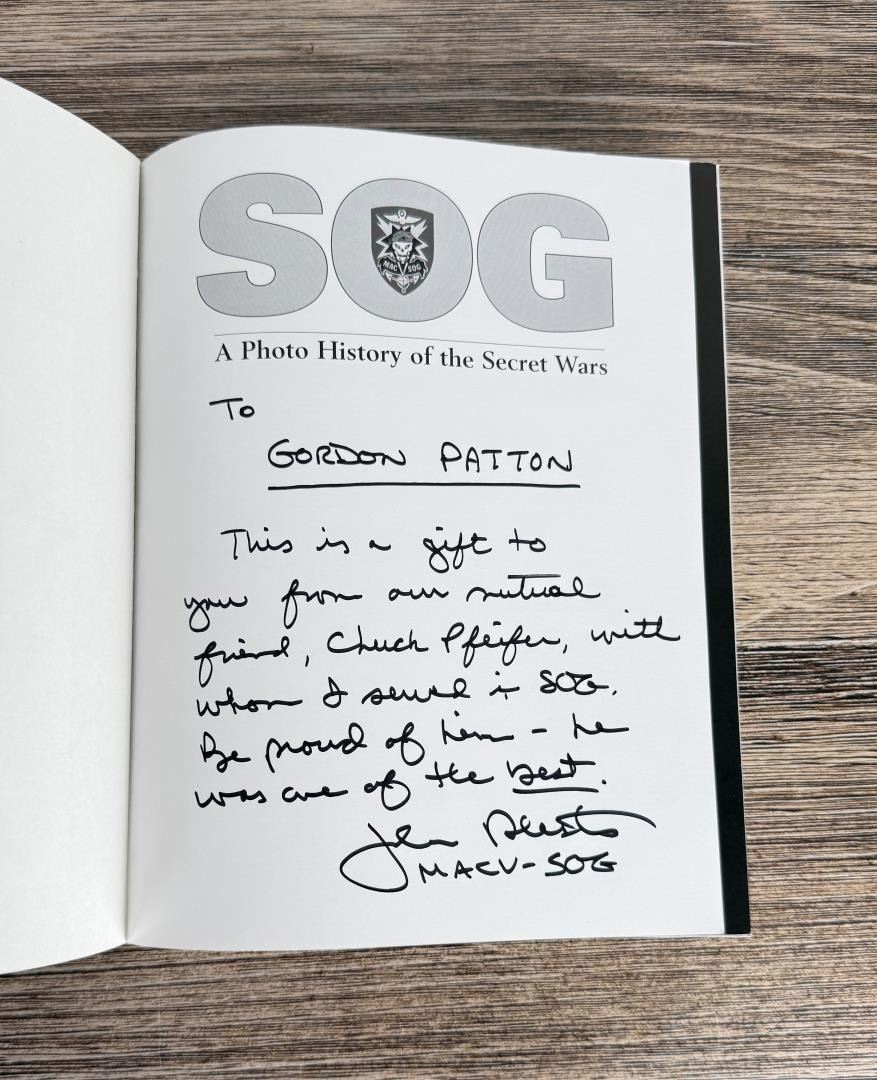 SOG
MAC SOG
A Photo History of the Secret Wars
To
GORDON PATTON
This is a gift to
you from our mutual
friend, Chuck Pfeifer, with
whom I served in SOG.
Be proud of him – he
was one of the best.
John Plaster
MACV-SOG